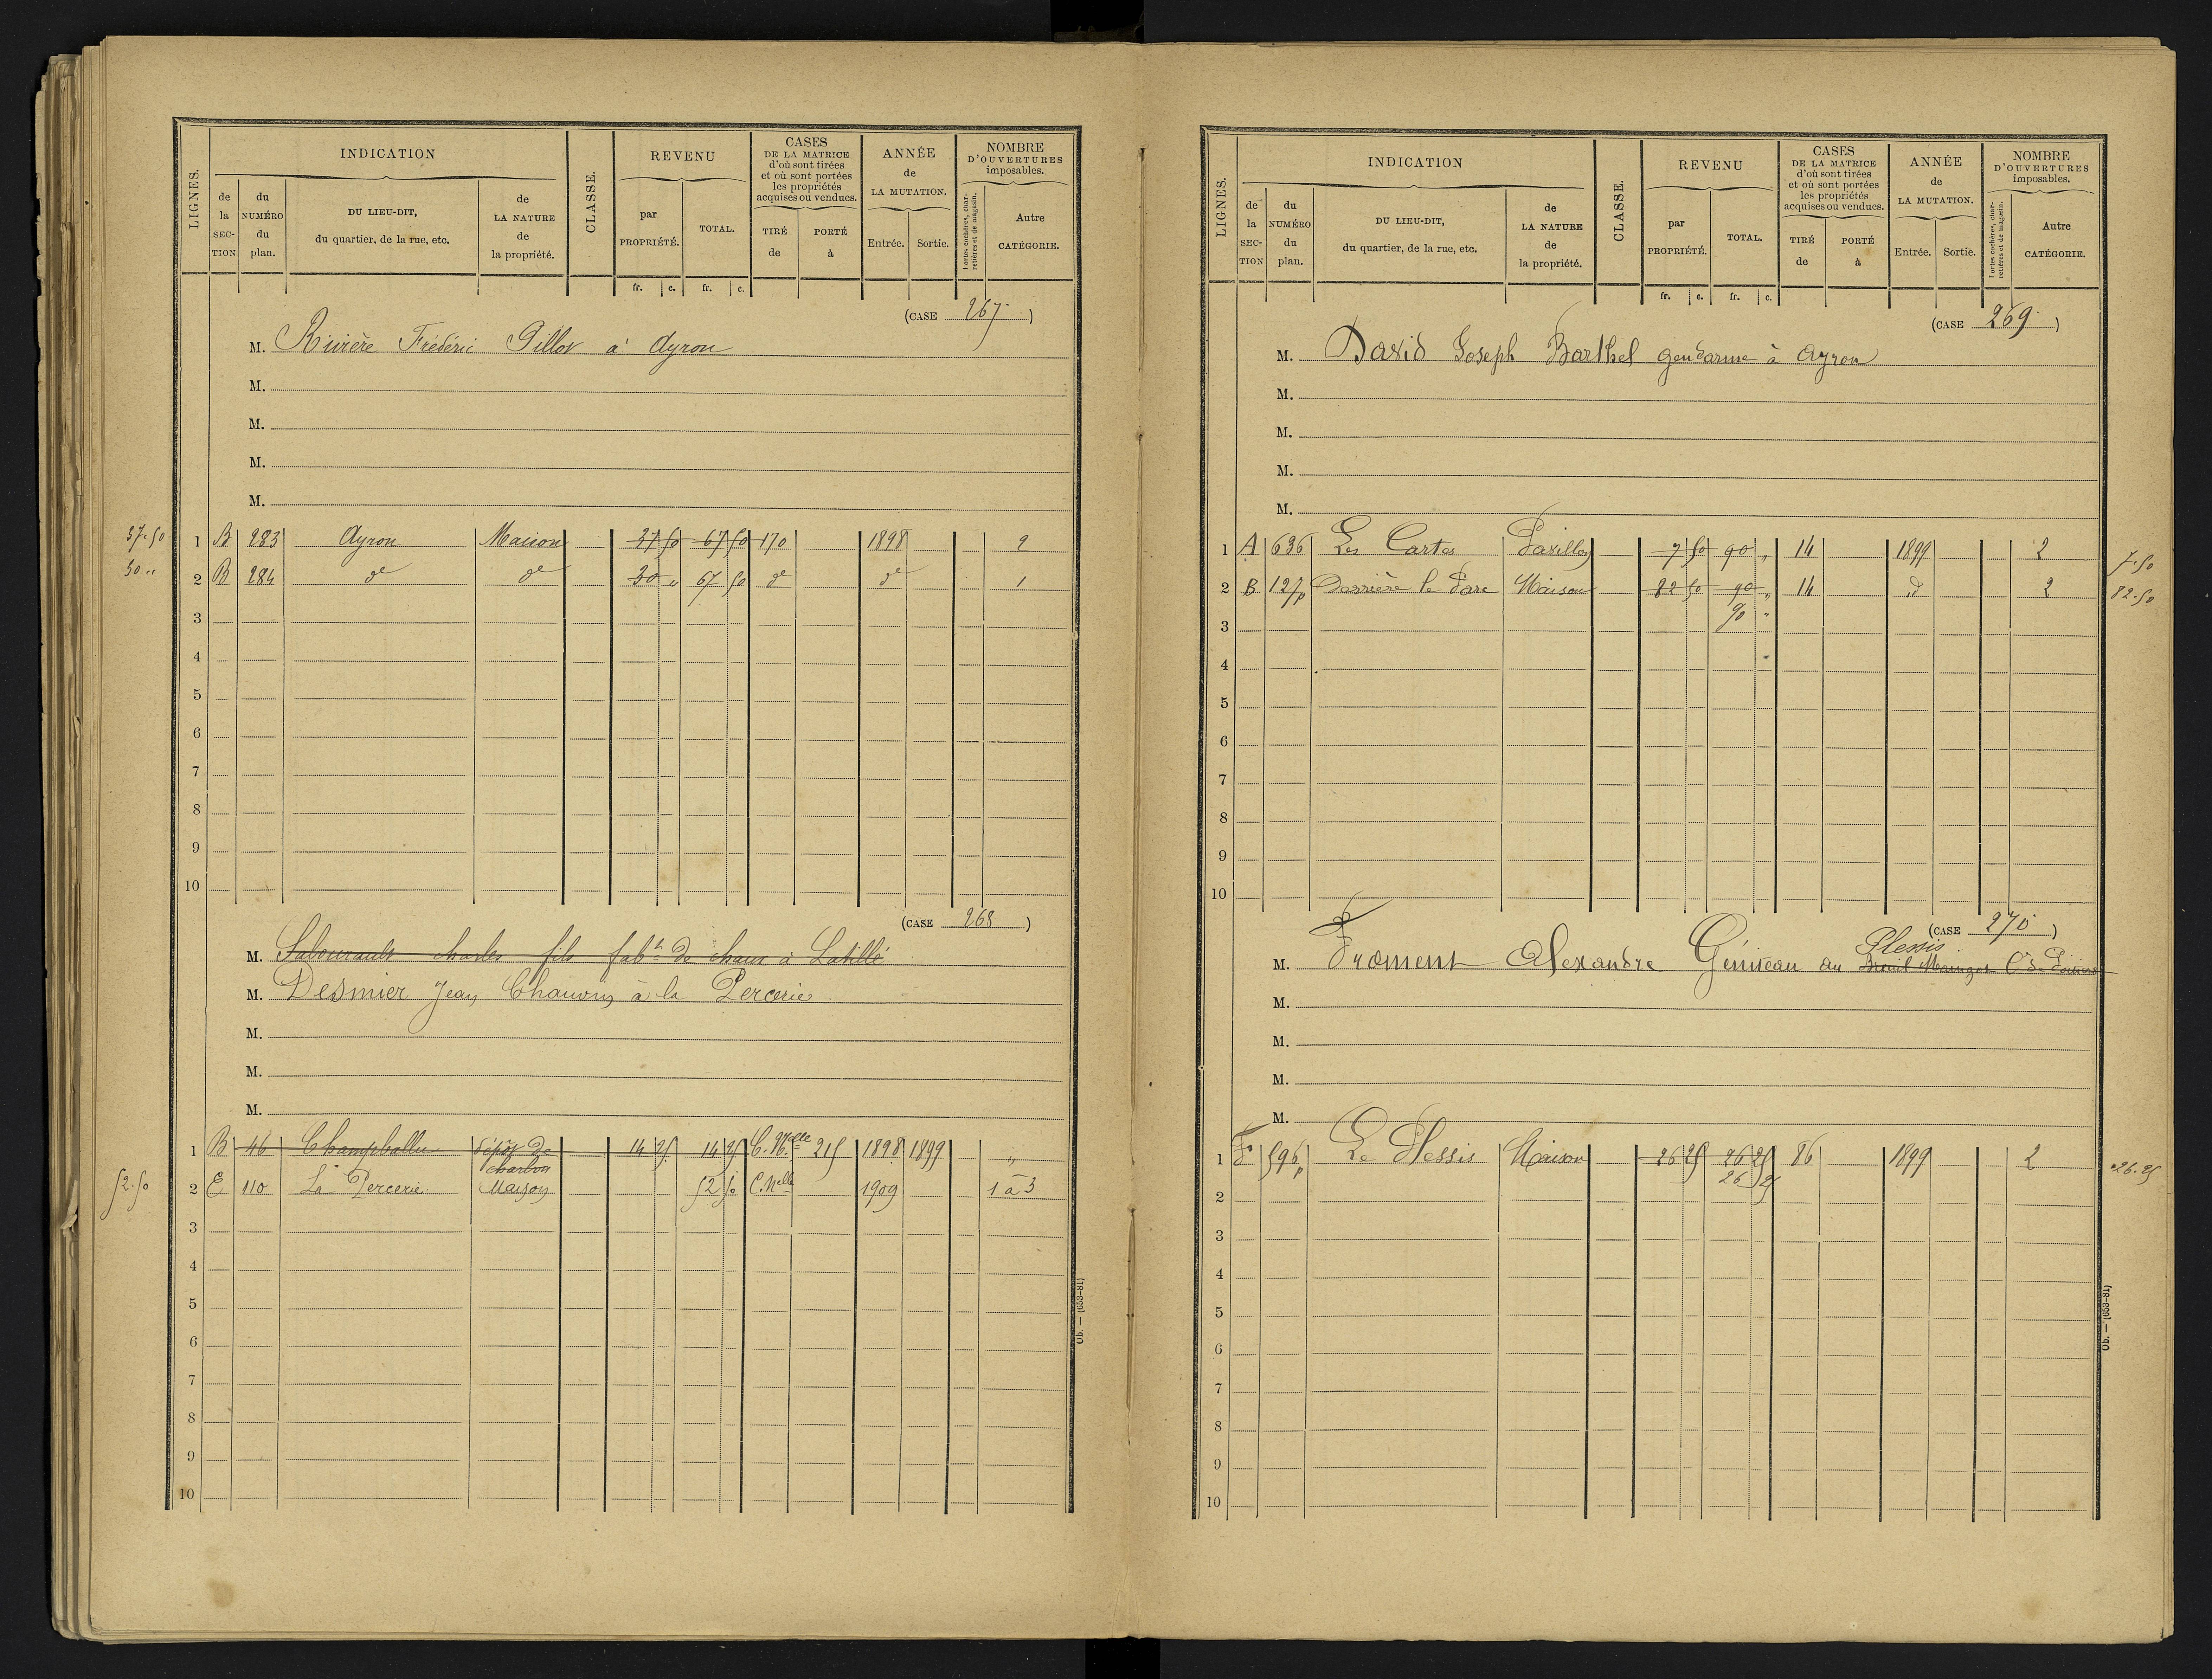 LIGNES.
INDICATION
de la SECTION
du NUMÉRO du plan.
DU LIEU-DIT, du quartier, de la rue, etc.
de LA NATURE de la propriété.
CLASSE.
REVENU
par PROPRIÉTÉ.
TOTAL.
CASES DE LA MATRICE d'où sont tirées et où sont portées les propriétés acquises ou vendues.
TIRÉ de
PORTÉ à
ANNÉE de LA MUTATION.
Entrée.
Sortie.
NOMBRE D'OUVERTURES imposables.
Portes cochères, charretières et de magasin.
Autre CATÉGORIE.
fr. c. fr. c.
(CASE 267)
M. Rivière Frédéric Pillot à Ayron
M.
M.
M.
M.
37.50 1 B 283 Ayron Maison 37 50 67 50 170 1898 2
30 " 2 B 284 d° d° 30 " 67 50 d° d° 1
3
4
5
6
7
8
9
10
(CASE 268)
M. Sabourault charles fils fabt de chaux à Latillé
M. Desmier Jean Chauvin à la Percerie
M.
M.
M.
1 B 46 Champballu Dépôt de charbon 14 25 14 25 C. Nelle 215 1898 1899 "
52.50 2 E 110 La Percerie Maison 52 50 C. Nelle 1909 1 à 3
3
4
5
6
7
8
9
10
Ob. — (653-81)
LIGNES.
INDICATION
de la SECTION
du NUMÉRO du plan.
DU LIEU-DIT, du quartier, de la rue, etc.
de LA NATURE de la propriété.
CLASSE.
REVENU
par PROPRIÉTÉ.
TOTAL.
CASES DE LA MATRICE d'où sont tirées et où sont portées les propriétés acquises ou vendues.
TIRÉ de
PORTÉ à
ANNÉE de LA MUTATION.
Entrée.
Sortie.
NOMBRE D'OUVERTURES imposables.
Portes cochères, charretières et de magasin.
Autre CATÉGORIE.
fr. c. fr. c.
(CASE 269)
M. David Joseph Barthel gendarme à Ayron
M.
M.
M.
M.
1 A 636 Les Cartes Pavillon 7 50 90 " 14 1899 2 7.50
2 B 127p Derrière le Parc Maison 82 50 90 " 14 d° 2 82.50
3 90 "
4
5
6
7
8
9
10
(CASE 270)
Plessis
M. Froment Alexandre Géniteau au Breuil Mingot Cne de Poitiers
M.
M.
M.
M.
1 F 596p Le Plessis Maison 26 25 26 25 86 1899 2 26.25
26 25
2
3
4
5
6
7
8
9
10
Ob. — (653-81)